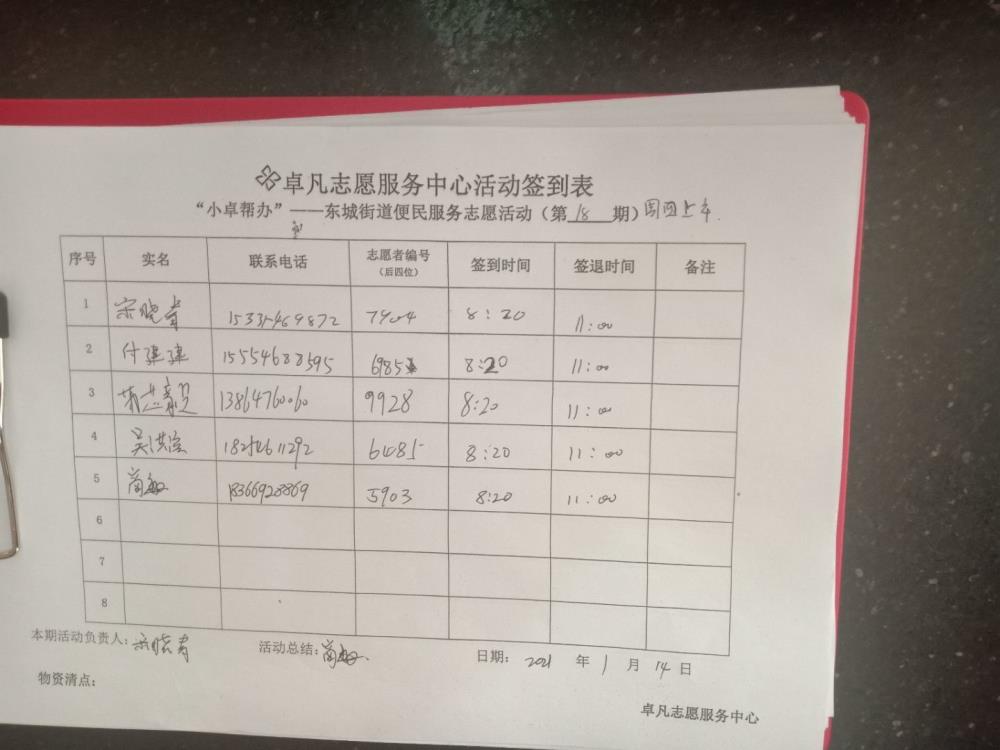 卓凡志愿服务中心活动签到表
“小卓帮办”——东城街道便民服务志愿活动（第18期）周四上午
序号 实名 联系电话 志愿者编号（后四位） 签到时间 签退时间 备注
1 宋晓青 15335469872 7904 8:20 11:00
2 付建建 15554688595 6985 8:20 11:00
3 13864760060 9928 8:20 11:00
4 吴洪滨 18254611292 6085 8:20 11:00
5 商敏 18366928869 5903 8:20 11:00
6
7
8
本期活动负责人：宋晓青 活动总结：商敏 日期：2021年1月14日
物资清点：
卓凡志愿服务中心